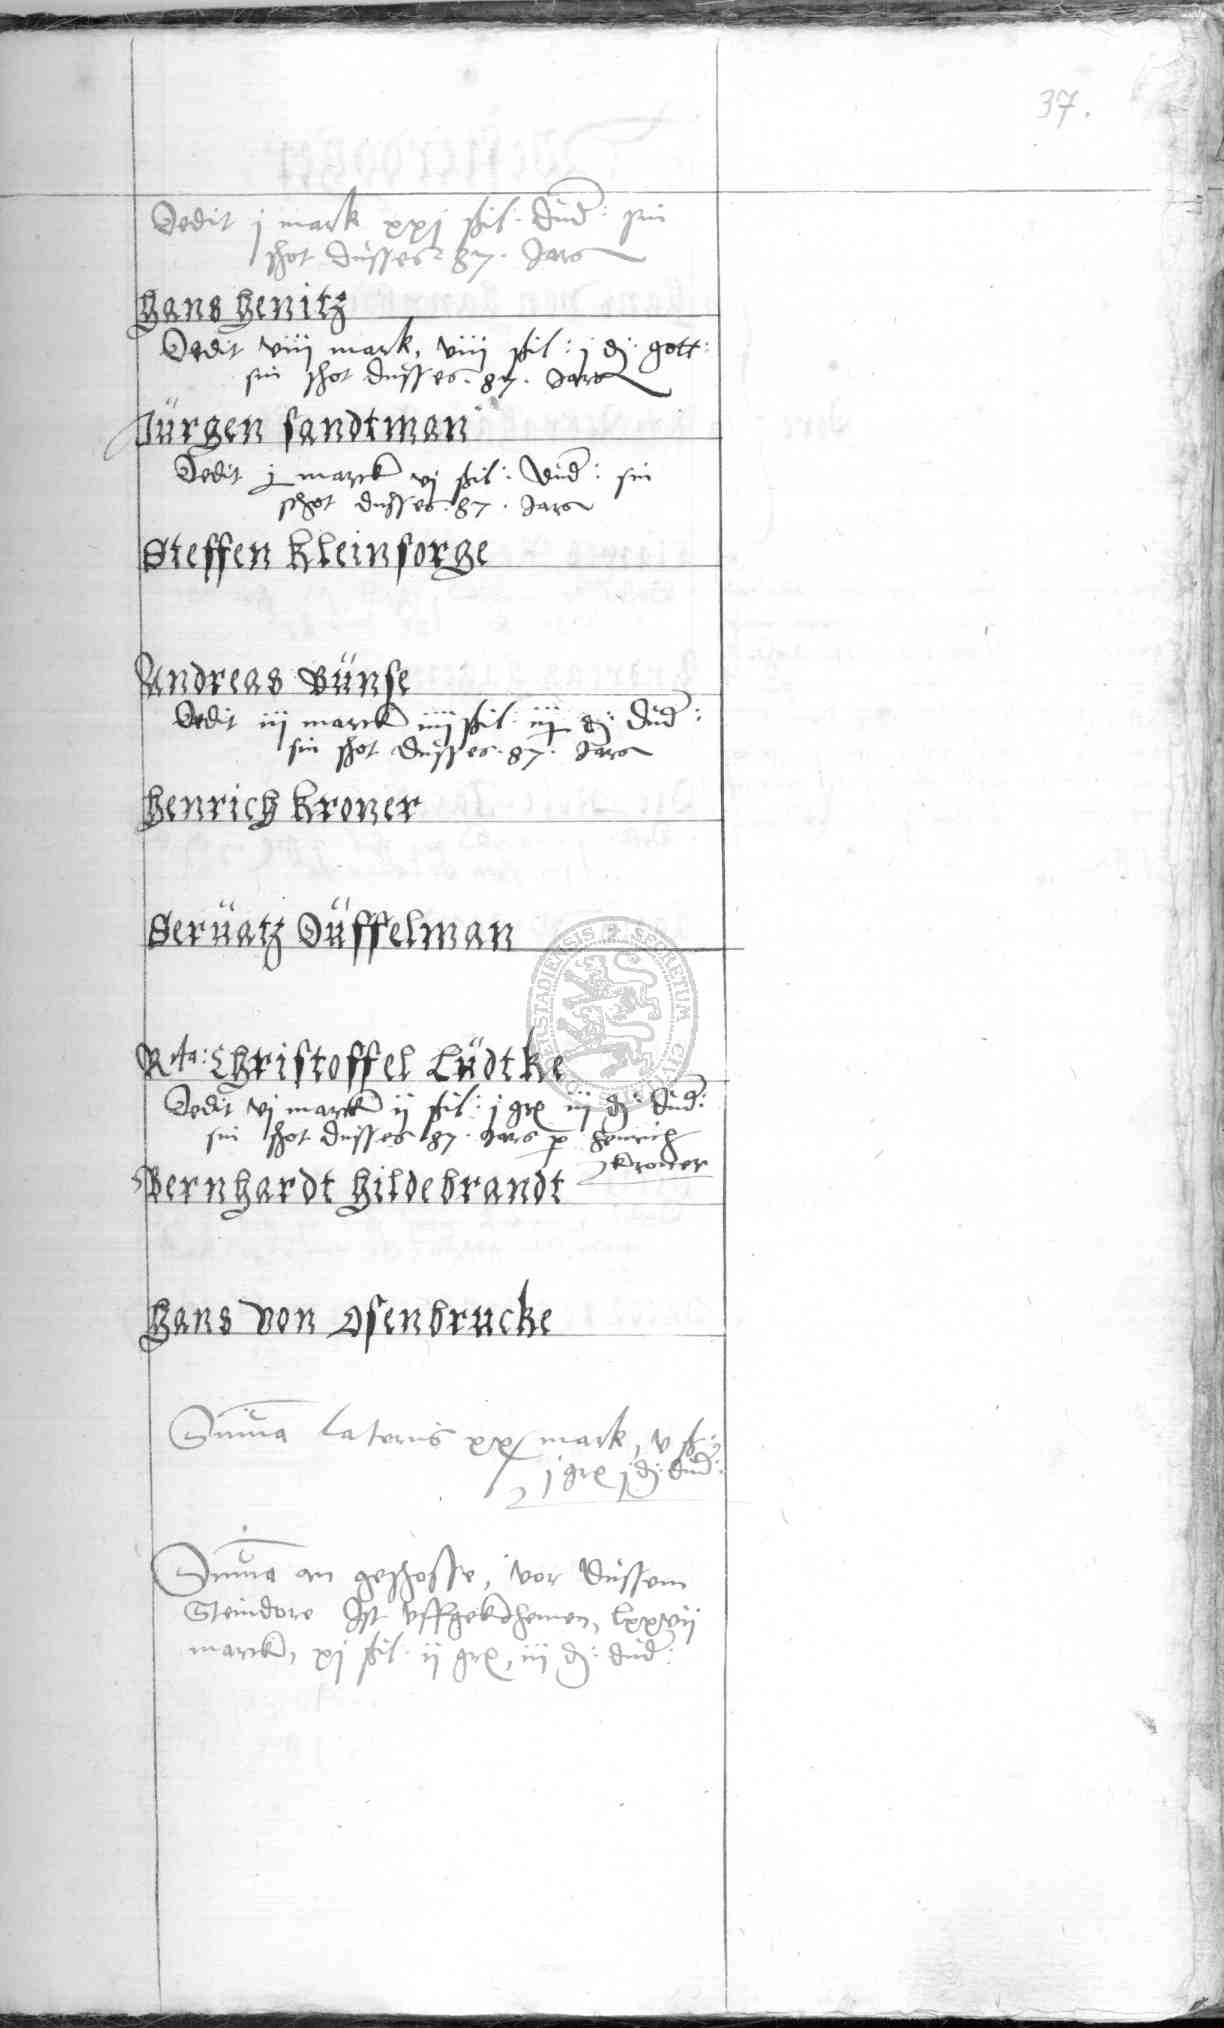 37.
Dedit j mark xxj ßil: düd: sin
schot düsses 87. Jars
Hans Henitz
Dedit viij mark, viij ßil: j d: gott:
sin schot düsses. 87. Jars
Jürgen Sandtman
Dedit j marck vj ßil: düd: sin
schot dusses. 87. Jars
Steffen Kleinsorge
Andreas Bünse
Dedit iij marck iiij ßil: iij d: düd:
sin schot düsses. 87. Jars
Henrich Kroner
Serüatz Düffelman
Rta: Christoffel Lüdtke
Dedit vj marck ij ßil: j gr iij d: düd:
sin schot dusses 87. Jars p Henrich
Kroner
Bernhardt Hildebrandt
Hans von Osenbrucke
SECRETUM
Suma lateris xx mark, v ß:
j gr j d: düd:
Suma an geschosse, vor düssem
Steindore Ist vffgekohemen, lxxvij
marck, xj ßil: ij gr, iij d: düd: